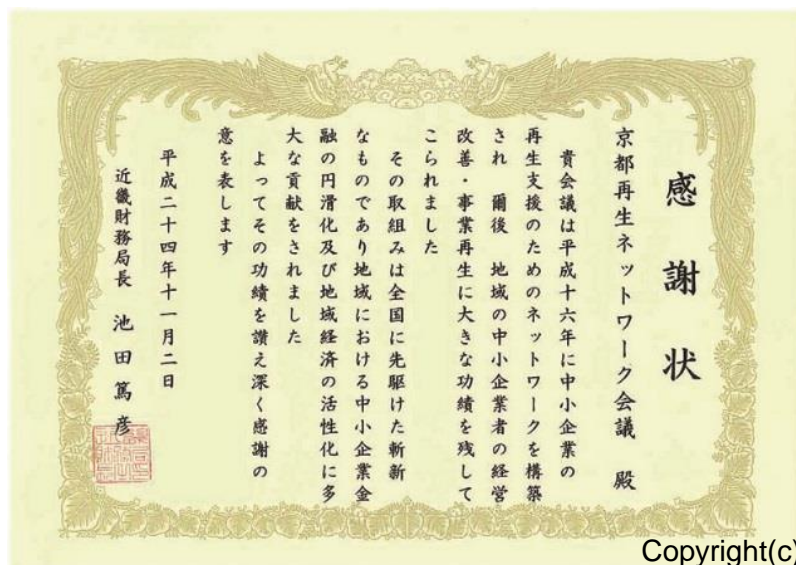 感謝状
京都再生ネットワーク会議　殿
貴会議は平成十六年に中小企業の
再生支援のためのネットワークを構築
され　爾後　地域の中小企業者の経営
改善・事業再生に大きな功績を残して
こられました
その取組みは全国に先駆けた斬新
なものであり地域における中小企業金
融の円滑化及び地域経済の活性化に多
大な貢献をされました
よってその功績を讃え深く感謝の
意を表します
平成二十四年十一月二日
近畿財務局長　池田篤彦
Copyright(c)